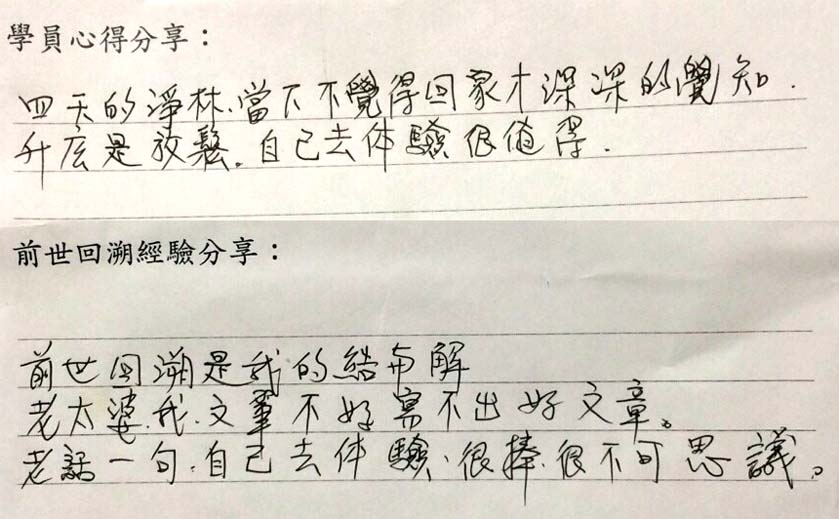 學員心得分享：
四天的淨林、當下不覺得回家才深深的覺知.
什広是放鬆。自己去体驗很值得.
前世回溯經驗分享：
前世回溯是我的結布解
老太婆.我.文筆不好寫不出好文章。
老話一句.自己去体驗、很棒.很不可思議。